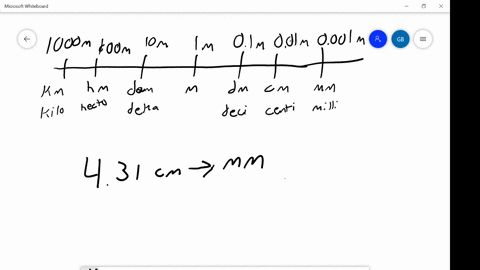 Microsoft Whiteboard
GB
1000m 100m 10m 1m 0.1m 0.01m 0.001m
Km hm dam m dm cm mm
Kilo hecto deka deci centi milli
4.31 cm → mm